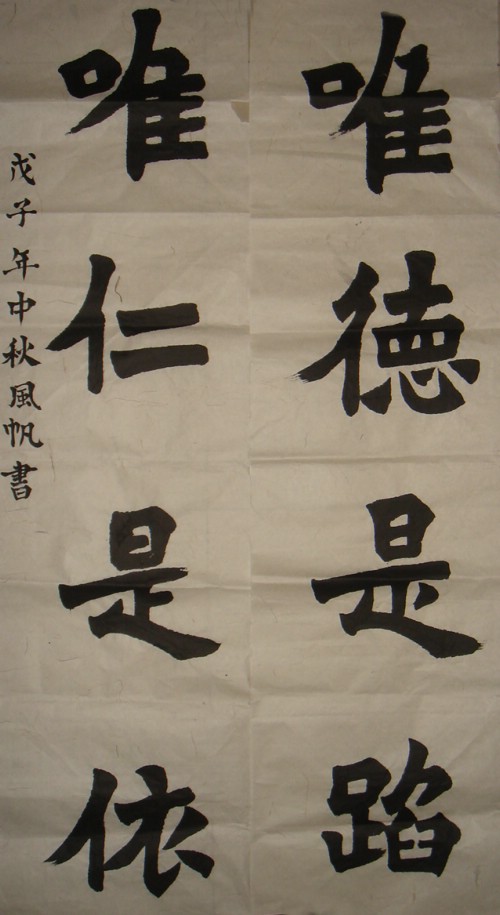 唯德是蹈
唯仁是依
戊子年中秋風帆書